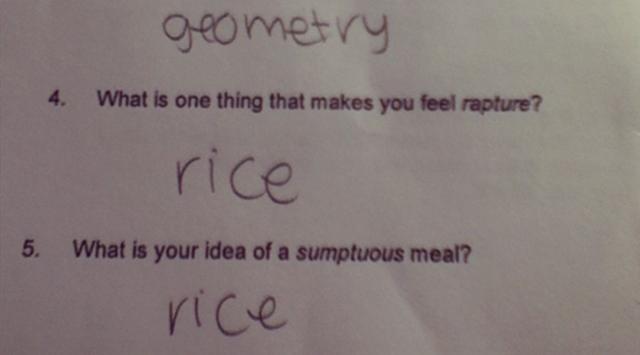 geometry
4. What is one thing that makes you feel rapture?
rice
5. What is your idea of a sumptuous meal?
rice